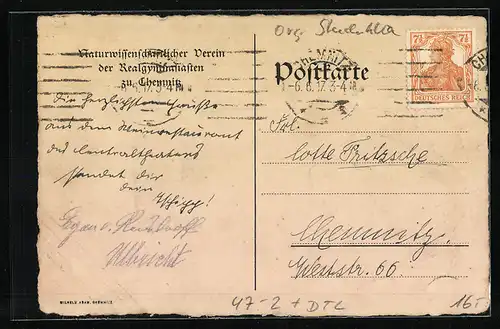 Org. Studentika
Naturwissenschaftlicher Verein
der Realgymnasiasten
zu Chemnitz
Postkarte
7½ 7½
DEUTSCHES REICH
CHEMNITZ
-6.6.17.3-4N
Die herzlichsten Grüsse
aus dem Weinrestaurant
des Centraltheaters
sendet dir
dein
Frl.
Lotte Fritzsche
Chemnitz
Weststr. 66.
Ulbricht
WILHELM ADAM, CHEMNITZ
47-2 + DTL
16T